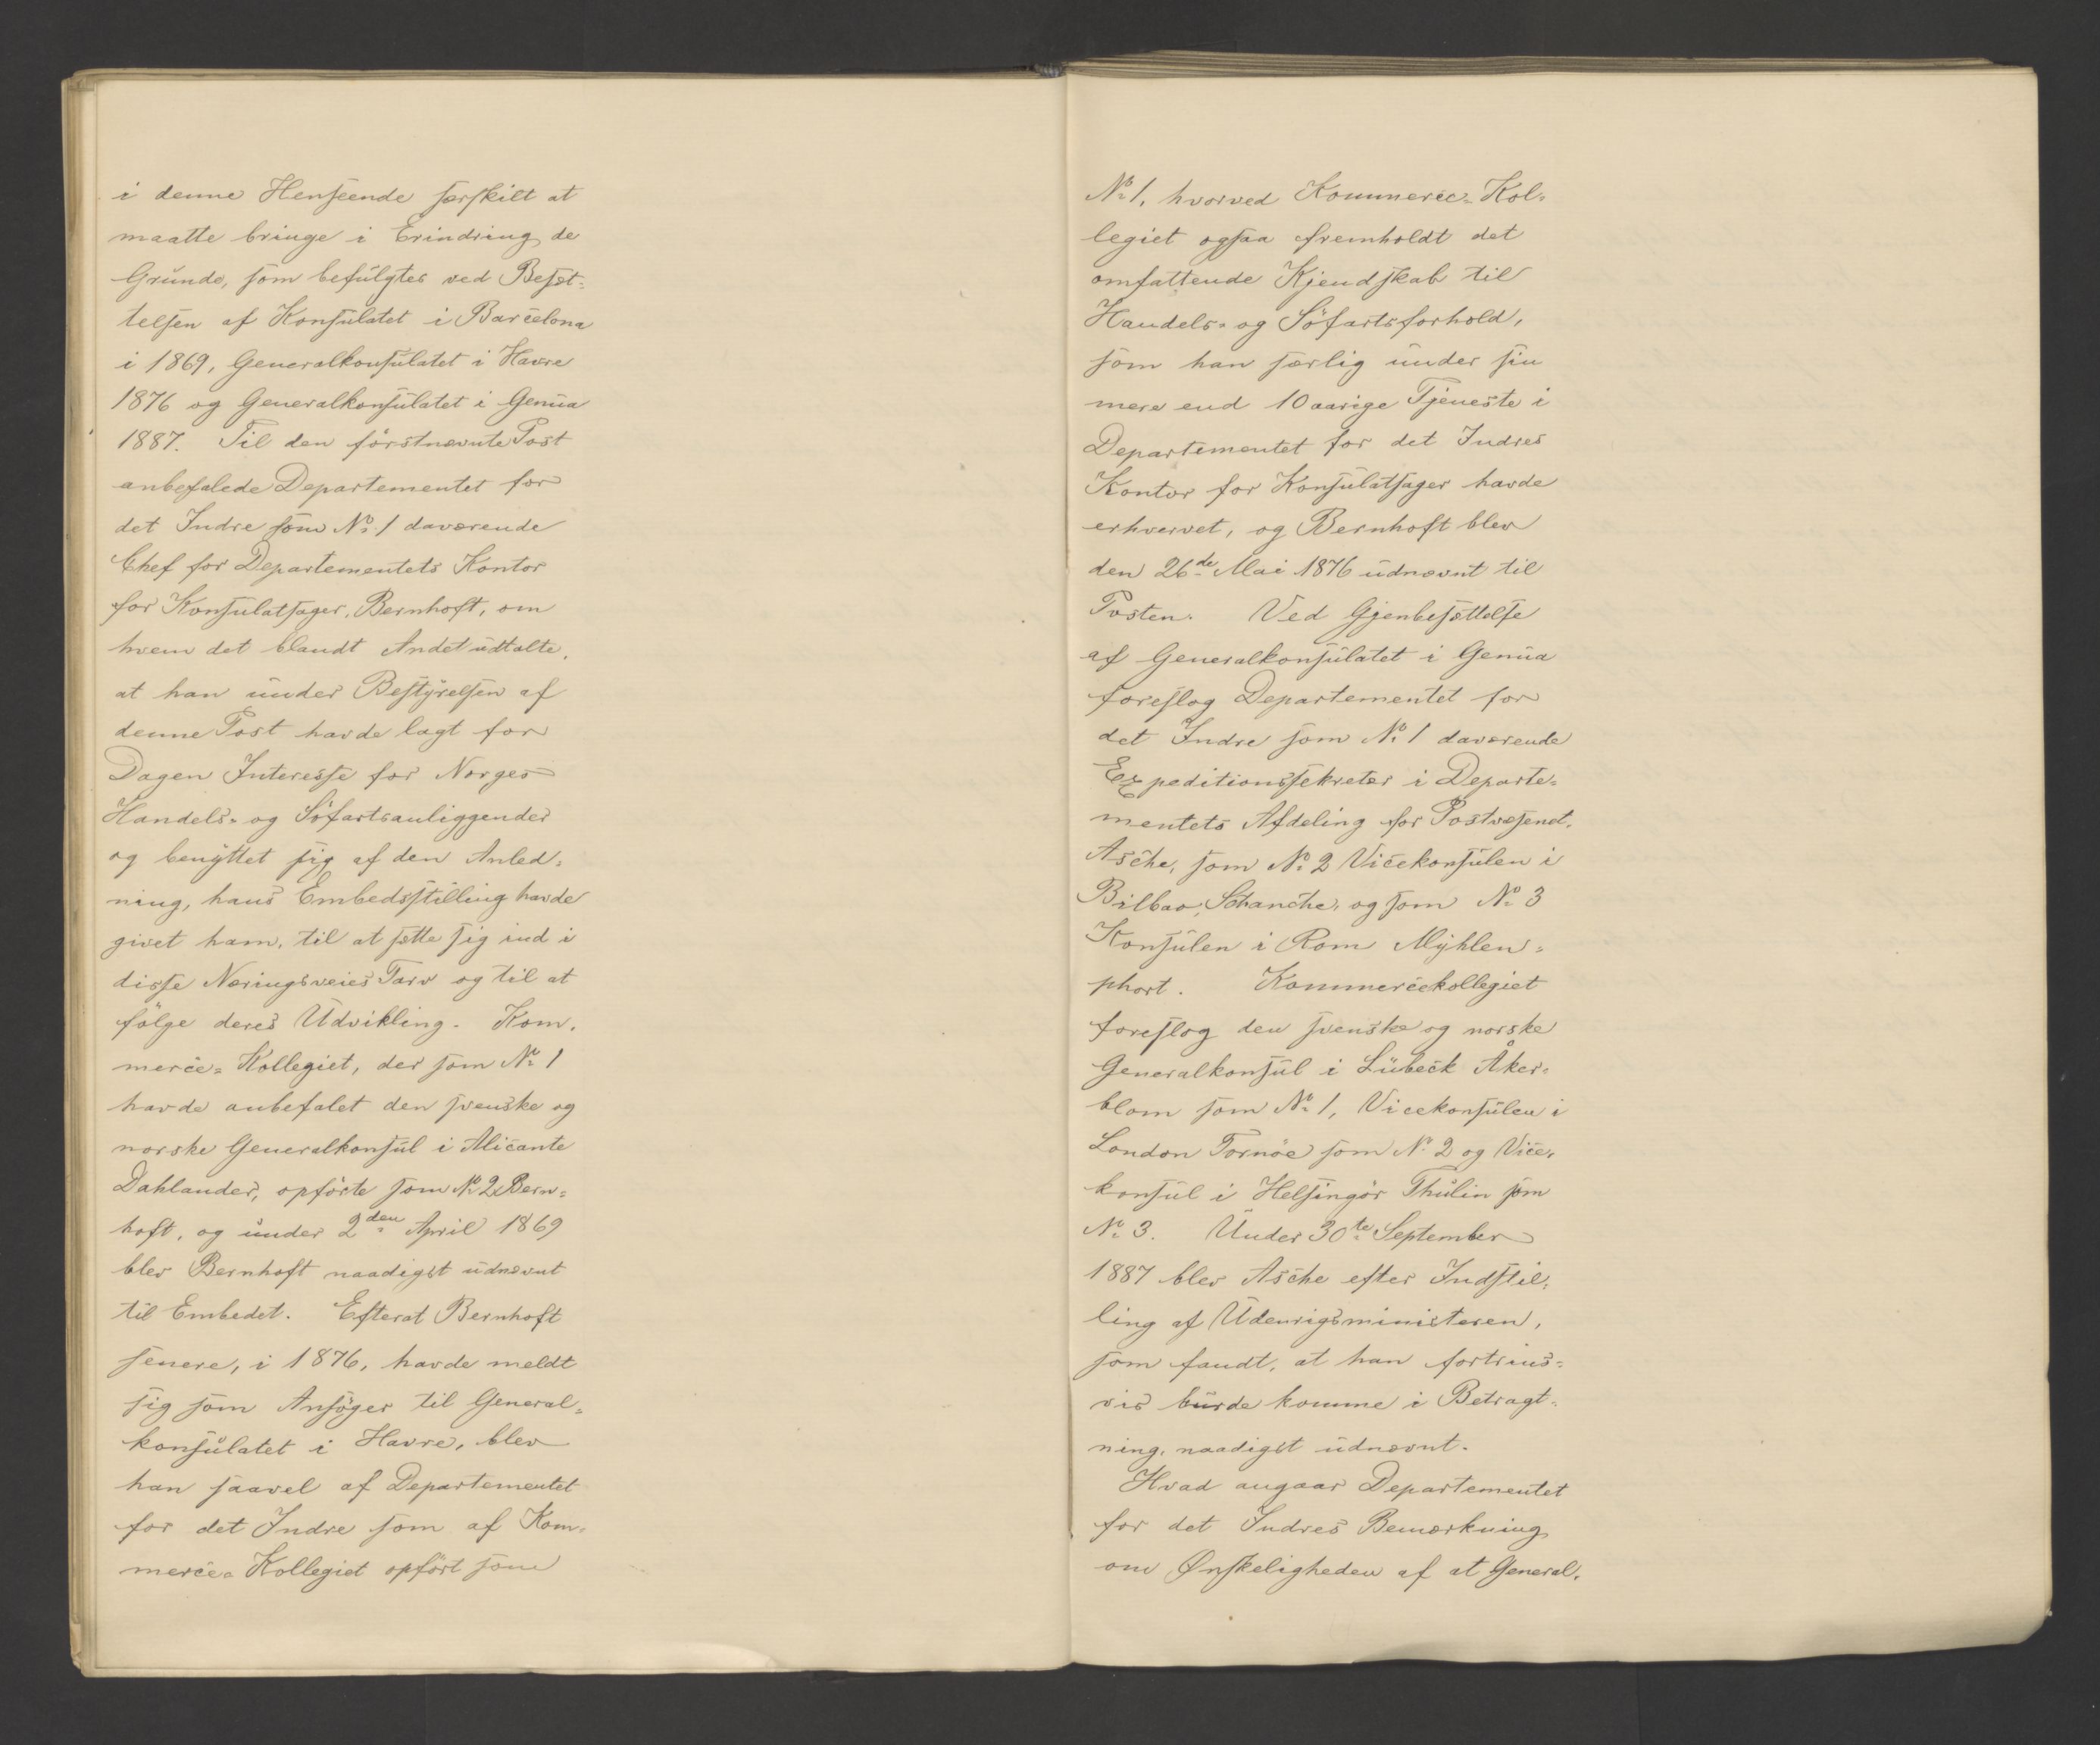 i denne Henseende særskilt at
maatte bringe i Erindring de
Grunde, som befulgtes ved Besæt-
telsen af Konsulatet i Barcelona
i 1869, Generalkonsulatet i Havre
1876 og Generalkonsulatet i Genua
1887. Til den förstnævnte Post
anbefalede Departementet for
det Indre som No 1 daværende
Chef for Departementets Kontor
for Konsulatsager, Bernhoft, om
hvem det blandt Andet udtalte,
at han under Bestyrelsen af
denne Post havde lagt for
Dagen Interesse for Norges
Handels- og Söfartsanliggender
og benyttet sig af den Anled-
ning, hans Embedsstilling havde
givet ham, til at sætte sig ind i
disse Næringsveies Tarv og til at
fölge deres Udvikling. Kom-
merce-Kollegiet, der som No 1
havde anbefalet den svenske og
norske Generalkonsul i Alicante
Dahlander, opförte som No 2 Bern-
hoft, og under 2den April 1869
blev Bernhoft naadigst udnævnt
til Embedet. Efterat Bernhoft
senere, i 1876, havde meldt
sig som Ansöger til General-
konsulatet i Havre, blev
han saavel af Departementet
for det Indre som af Kom-
merce-Kollegiet opfört som
No 1, hvorved Kommerce-Kol-
legiet ogsaa fremholdt det
omfattende Kjendskab til
Handels- og Söfartsforhold,
som han særlig under sin
mere end 10 aarige Tjeneste i
Departementet for det Indres
Kontor for Konsulatsager havde
erhvervet, og Bernhoft blev
den 26de Mai 1876 udnævnt til
Posten. Ved Gjenbesættelse
af Generalkonsulatet i Genua
foreslog Departementet for
det Indre som No 1 daværende
Expeditionssekretær i Departe-
mentets Afdeling for Postvæsenet,
Asche, som No 2 Vicekonsulen i
Bilbao, Schanche, og som No 3
Konsulen i Rom Myhlen-
phort. Kommercekollegiet
foreslog den svenske og norske
Generalkonsul i Lübeck Åker-
blom som No 1, Vicekonsulen i
London Tornöe som No 2 og Vice-
konsul i Helsingör Thulin som
No 3. Under 30te September
1887 blev Asche efter Indstil-
ling af Udenrigsministeren,
som fandt, at han fortrins-
vis burde komme i Betragt-
ning, naadigst udnævnt.
Hvad angaar Departementet
for det Indres Bemærkning
om Ønskeligheden af at General-